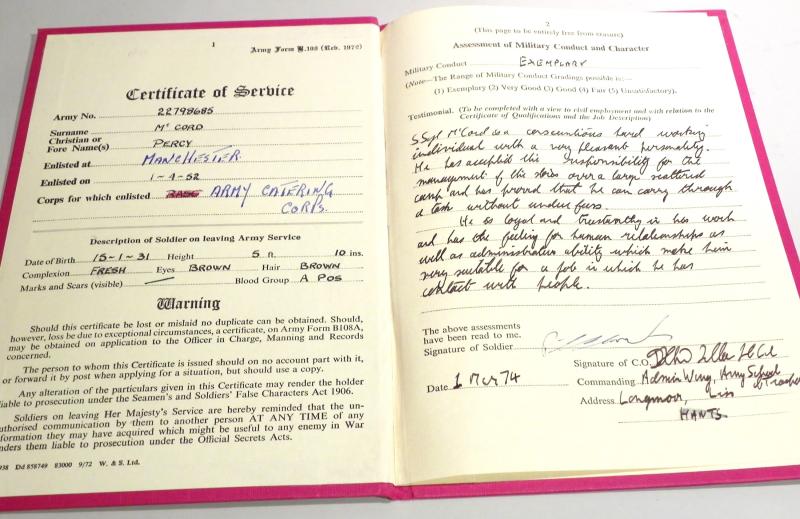 1
Army Form B.108 (Rev. 1972)
Certificate of Service
Army No. 22798685
Surname Mc CORD
Christian or Fore Name(s) PERCY
Enlisted at MANCHESTER.
Enlisted on 1-4-52
Corps for which enlisted RASC ARMY CATERING
CORPS.
Description of Soldier on leaving Army Service
Date of Birth 15-1-31 Height 5 ft. 10 ins.
Complexion FRESH Eyes BROWN Hair BROWN
Marks and Scars (visible) Blood Group A POS
Warning
Should this certificate be lost or mislaid no duplicate can be obtained. Should,
however, loss be due to exceptional circumstances, a certificate, on Army Form B108A,
may be obtained on application to the Officer in Charge, Manning and Records
concerned.
The person to whom this Certificate is issued should on no account part with it,
or forward it by post when applying for a situation, but should use a copy.
Any alteration of the particulars given in this Certificate may render the holder
liable to prosecution under the Seamen's and Soldiers' False Characters Act 1906.
Soldiers on leaving Her Majesty's Service are hereby reminded that the un-
authorised communication by them to another person AT ANY TIME of any
information they may have acquired which might be useful to any enemy in War
renders them liable to prosecution under the Official Secrets Acts.
938 Dd 858749 83000 9/72 W. & S. Ltd.
2
(This page to be entirely free from erasure)
Assessment of Military Conduct and Character
Military Conduct EXEMPLARY
(Note—The Range of Military Conduct Gradings possible is:—
(1) Exemplary (2) Very Good (3) Good (4) Fair (5) Unsatisfactory).
Testimonial. (To be completed with a view to civil employment and with relation to the
Certificate of Qualifications and the Job Description)
S Sgt McCord is a conscientious hard working
individual with a very pleasant personality.
He has accepted the responsibility for the
management of the stores over a large scattered
camp and has proved that he can carry through
a task without undue fuss.
He is loyal and trustworthy in his work
and has the feeling for human relationships as
well as administrative ability which make him
very suitable for a job in which he has
contact with people.
The above assessments
have been read to me.
Signature of Soldier
Signature of C.O.
Date 1 Mar 74 Commanding Admin Wing, Army School
Address Longmoor, Liss
HANTS